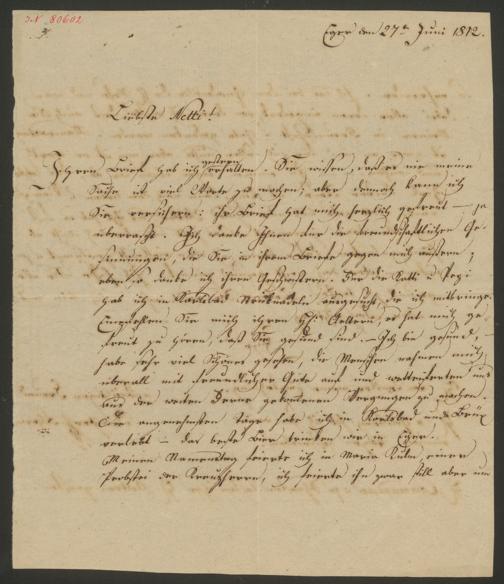 I.N. 80602
Eger den 27t Juni 1812.
Liebste Netti!
Ihren Brief hab ich gestern erhalten. Sie wissen, daß es nie meine
Sache ist viel Worte zu machen; aber dennoch kann ich
Sie versichern: ihr Brief hat mich herzlich gefreut — ja
überrascht. Ich danke Ihnen für die freundschaftlichen Ge-
sinnungen, die Sie in ihrem Briefe gegen mich äussern;
eben so danke ich ihren Geschwistern. Für die Kathi u Pepi
hab ich in Karlsbad Stricknadeln ausgesucht, die ich mitbringe.
Empfehlen Sie mich ihren Aeltern, es hat mich ge-
freut zu hören, daß Sie gesund sind. — Ich bin gesund,
habe sehr viel Schönes gesehen, die Menschen nahmen mich
überall mit freundlicher Güte auf und wetteiferten uns
aus der weiten Ferne gekommenen Vergnügen zu machen.
Die angenehmsten Tage habe ich in Karlsbad und Brüx
verlebt — das beste Bier trinken wir in Eger.
Meinen Namenstag feierte ich in Maria Kulm, einer
Probstei der Kreuzherren, ich feierte ihn zwar still aber um